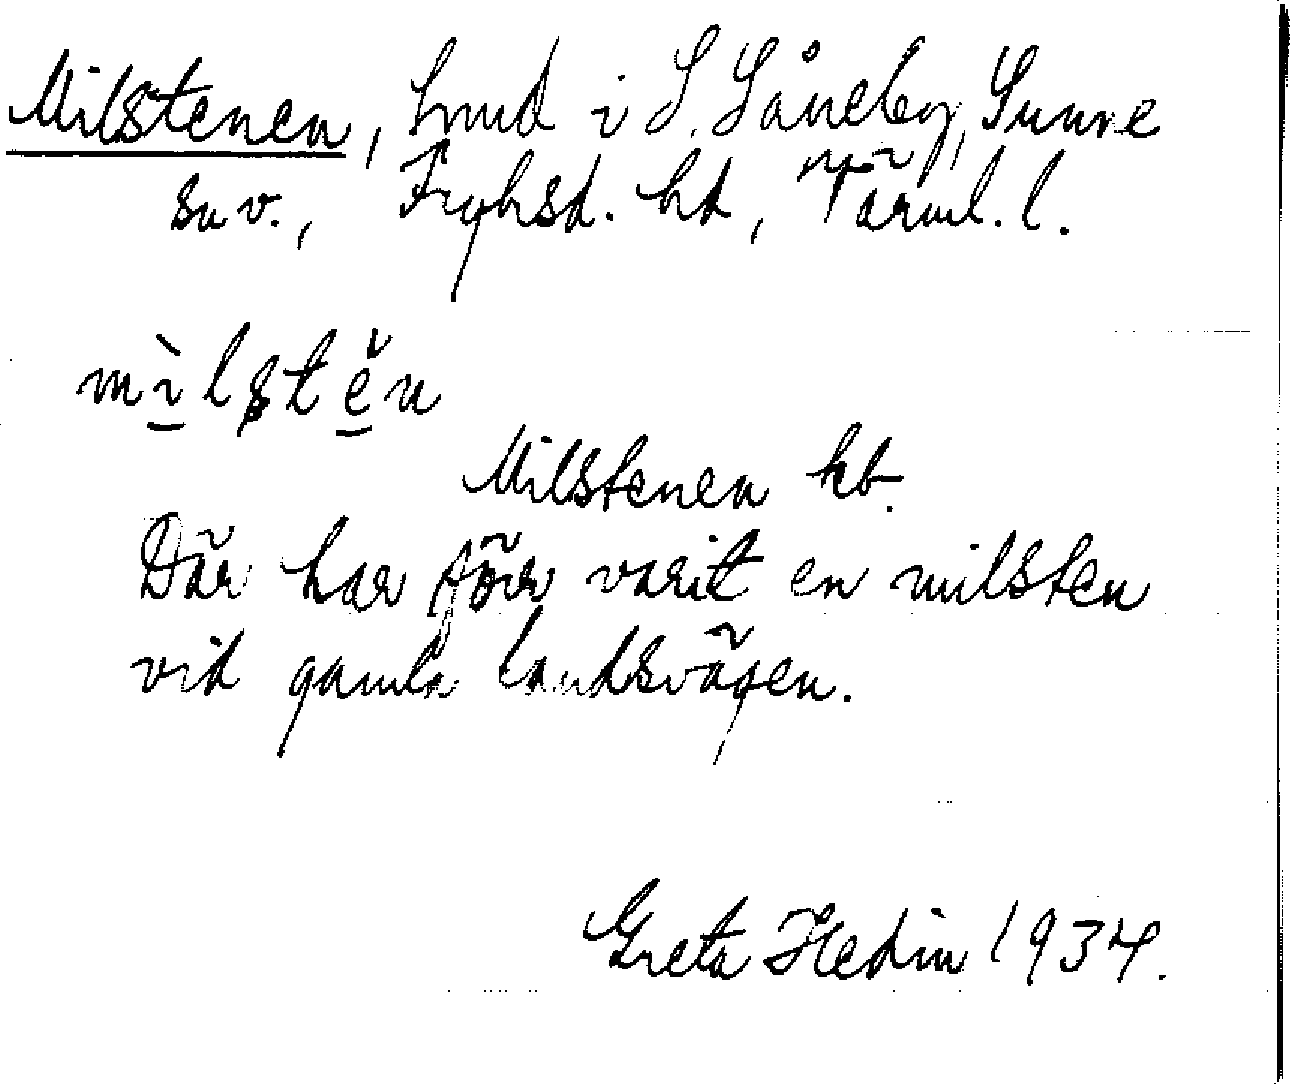 Milstenen, hmd i S. Såneby, Sunne
sn v., Fryksd. hd, Värml. l.
mìlstěn
Milstenen kb.
Där har förr varit en milsten
vid gamla landsvägen.
Greta Hedin 1934.